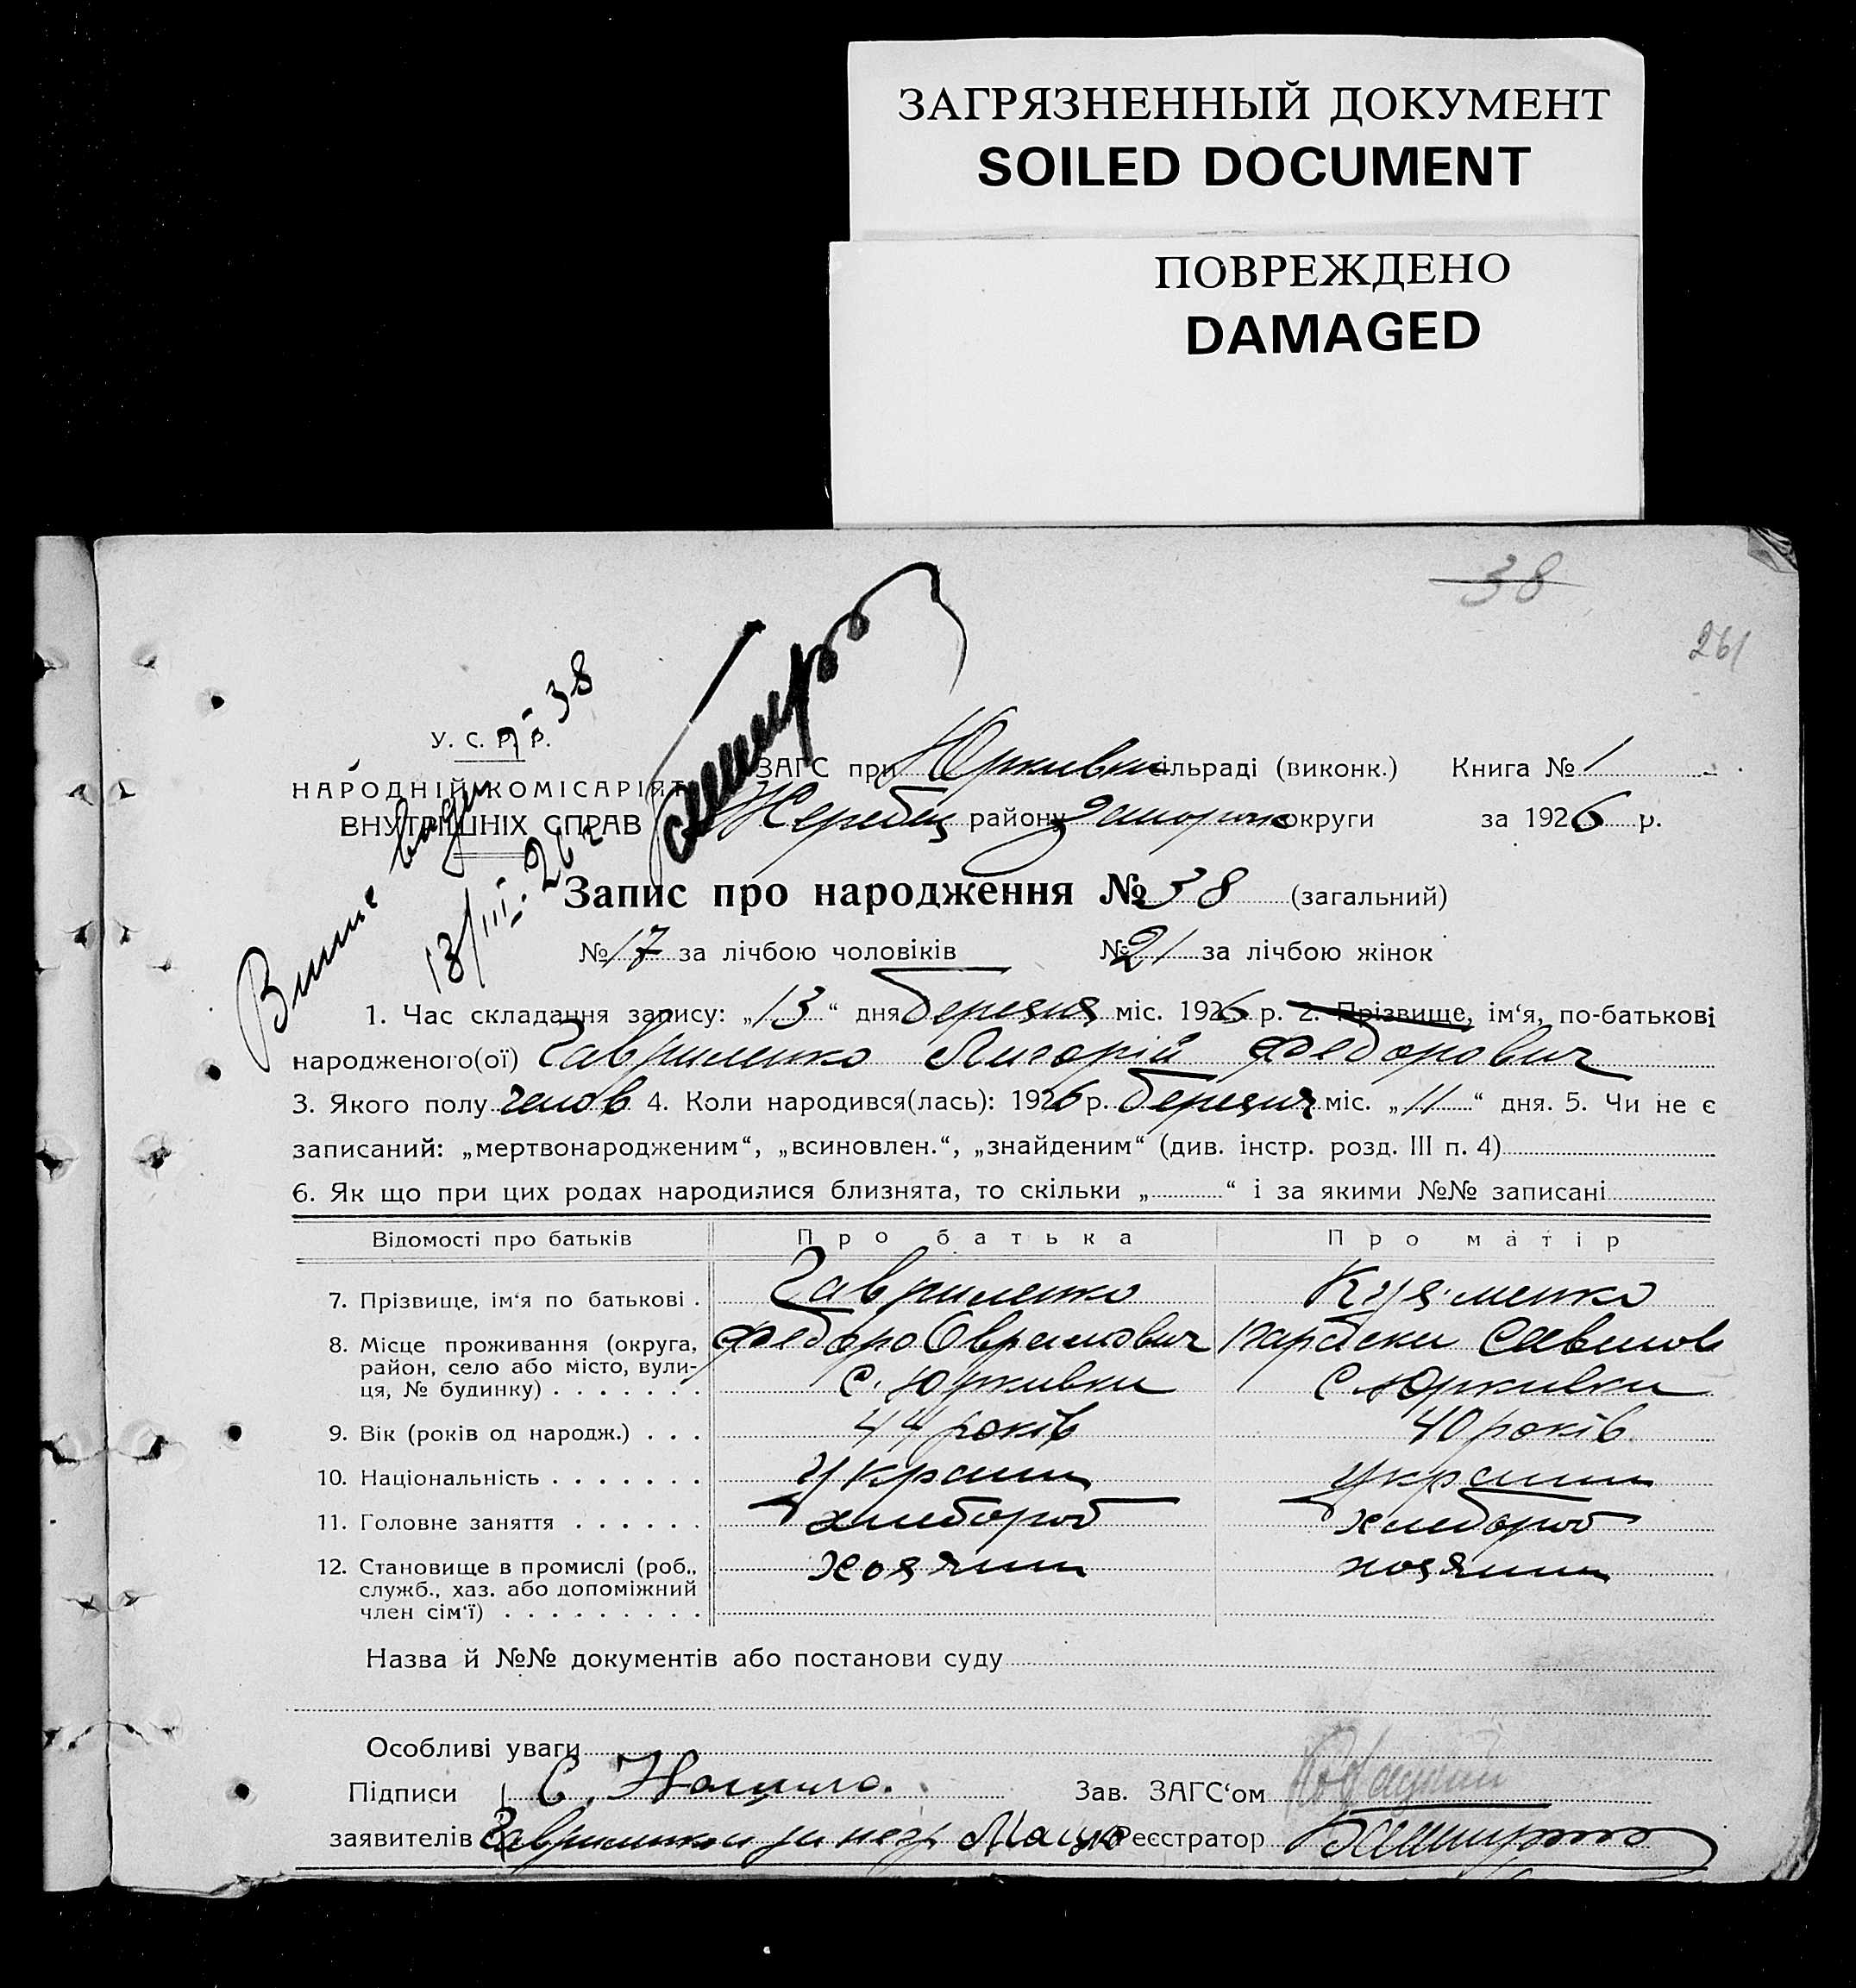 ЗАГРЯЗНЕННЫЙ ДОКУМЕНТ
SOILED DOCUMENT
ПОВРЕЖДЕНО
DAMAGED
38
261
№ 38
У. С. Р. Р.
НАРОДНІЙ КОМІСАРІЯТ
ВНУТРІШНІХ СПРАВ
13/III-26 г
ЗАГС при Юркивка сільраді (виконк.) Книга № 1
Жеребец району Запорож округи за 1926 р.
Запис про народження № 38 (загальний)
№ 17 за лічбою чоловіків № 21 за лічбою жінок
1. Час складання запису: „13“ дня березня міс. 1926 р. 2. Прізвище, ім‘я, по-батькові
народженого(ої) Гавриленко Лигорій Федорович
3. Якого полу челов 4. Коли народився(лась): 1926 р. березня міс. „11“ дня. 5. Чи не є
записаний: „мертвонародженим“, „всиновлен.“, „знайденим“ (див. інстр. розд. III п. 4)
6. Як що при цих родах народилися близнята, то скільки „ “ і за якими №№ записані
Відомості про батьків Про батька Про матір
7. Прізвище, ім‘я по батькові . Гавриленко Кузменко
8. Місце проживання (округа, Федор Оврамович Параски Савинов
район, село або місто, вули- с. Юркивки с Юркивки
ця, № будинку) . . . . . . .
9. Вік (років од народж.) . . . 44 років 40 років
10. Національність . . . . . . . Украин украин
11. Головне заняття . . . . . . хлебороб хлебороб
12. Становище в промислі (роб., хозяин хозяин
служб., хаз. або допоміжний
член сім‘ї) . . . . . . . . .
Назва й №№ документів або постанови суду
Особливі уваги
Підписи С. Зав. ЗАГС‘ом
заявителів Гавриленко за негр Реєстратор